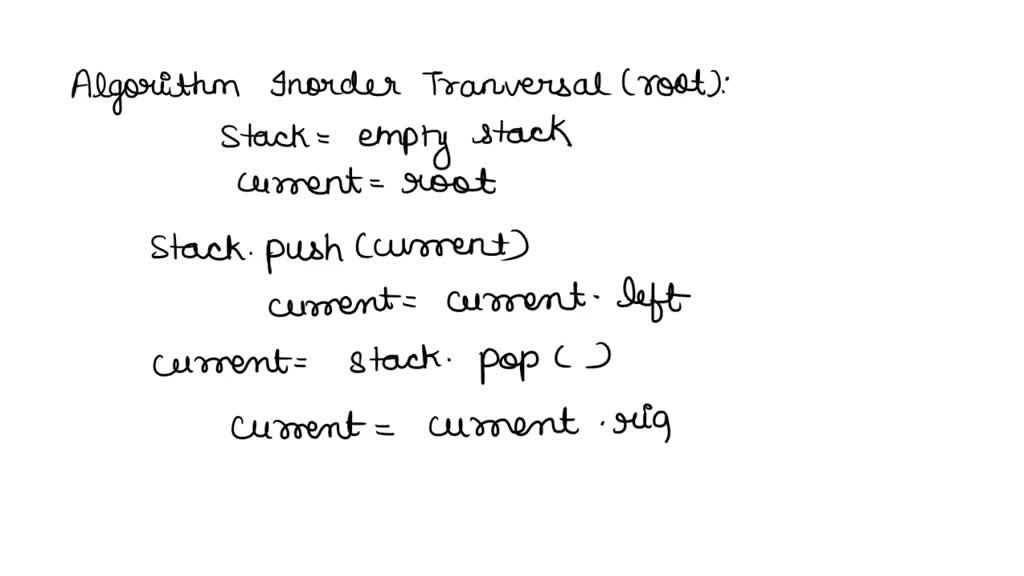 Algorithm Inorder Tranversal (root):
Stack = empty stack
current = root
Stack. push (current)
current = current. left
current = stack. pop ( )
current = current .rig